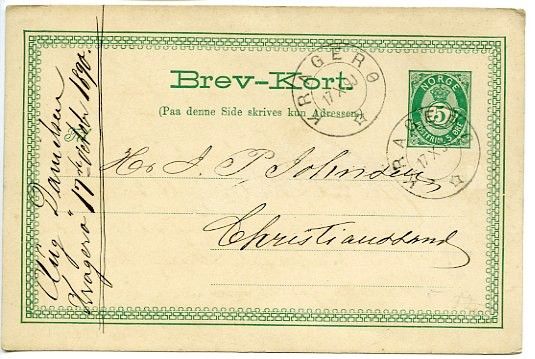 Brev-Kort.
(Paa denne Side skrives kun Adressen)
NORGE
5
POSTFRIM. 5 ØRE
KRAGERØ
17 X 90
KRAGERØ
17 X 9
Hr J. P. Johnsen
Christianssand
Aug Danielsen
Kragerø 17de Octbr 1890.